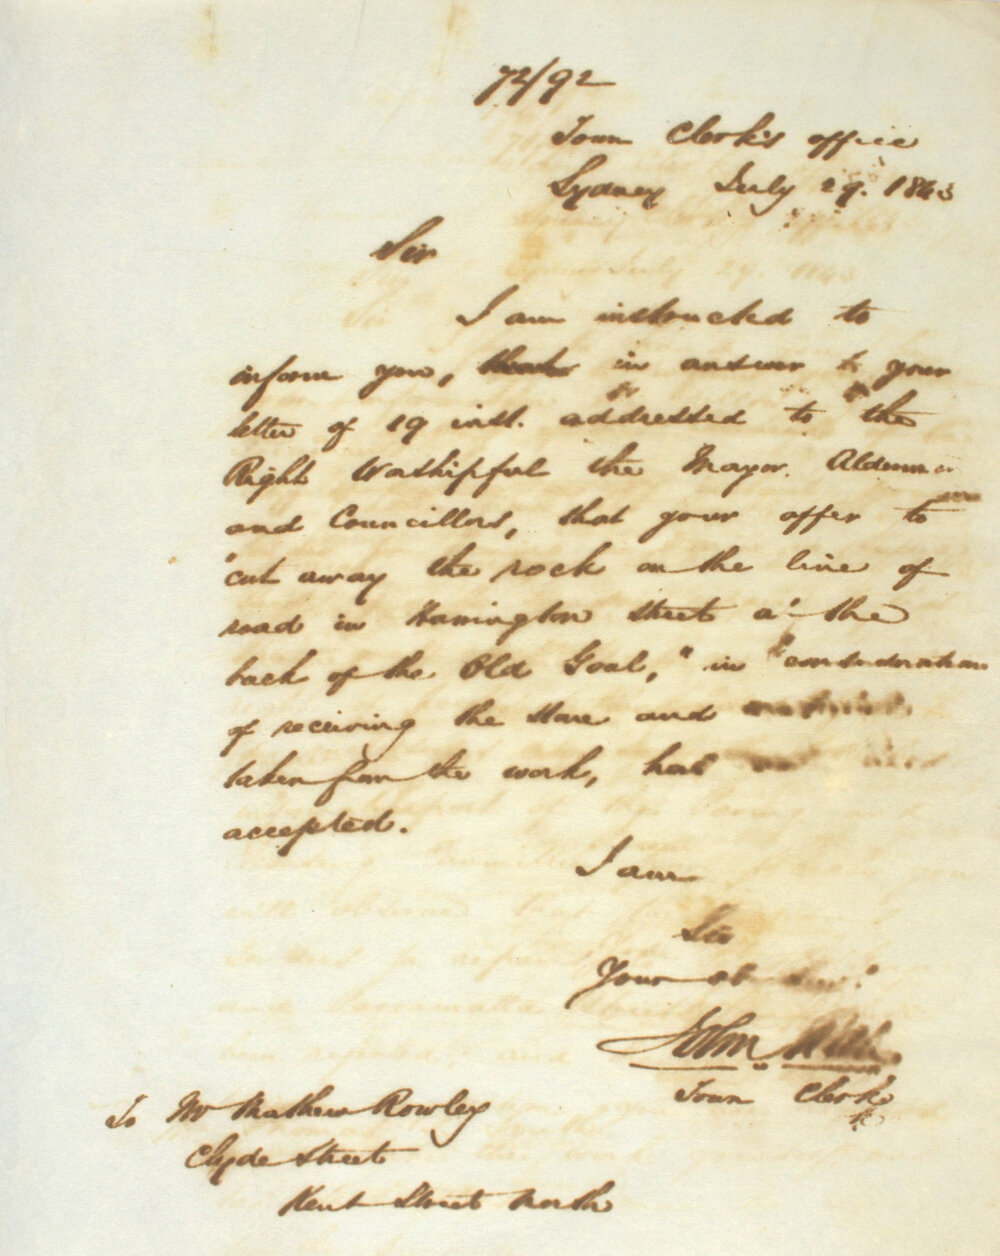 72/92
Town Clerk's office
Sydney July 29. 1843
Sir
I am instructed to
inform you, in answer to your
letter of 19 inst. addressed to the
Right Worshipful the Mayor. Aldermen
and Councillors, that your offer to
"cut away the rock on the line of
road in Harrington Street at the
back of the Old Goal," in "consideration
of receiving the stone and
taken from the work, has
accepted.
I am
Sir
Your ob Serv.t
John
Town Clerk
To Mr Mathew Rowley
Clyde Street
Kent Street North